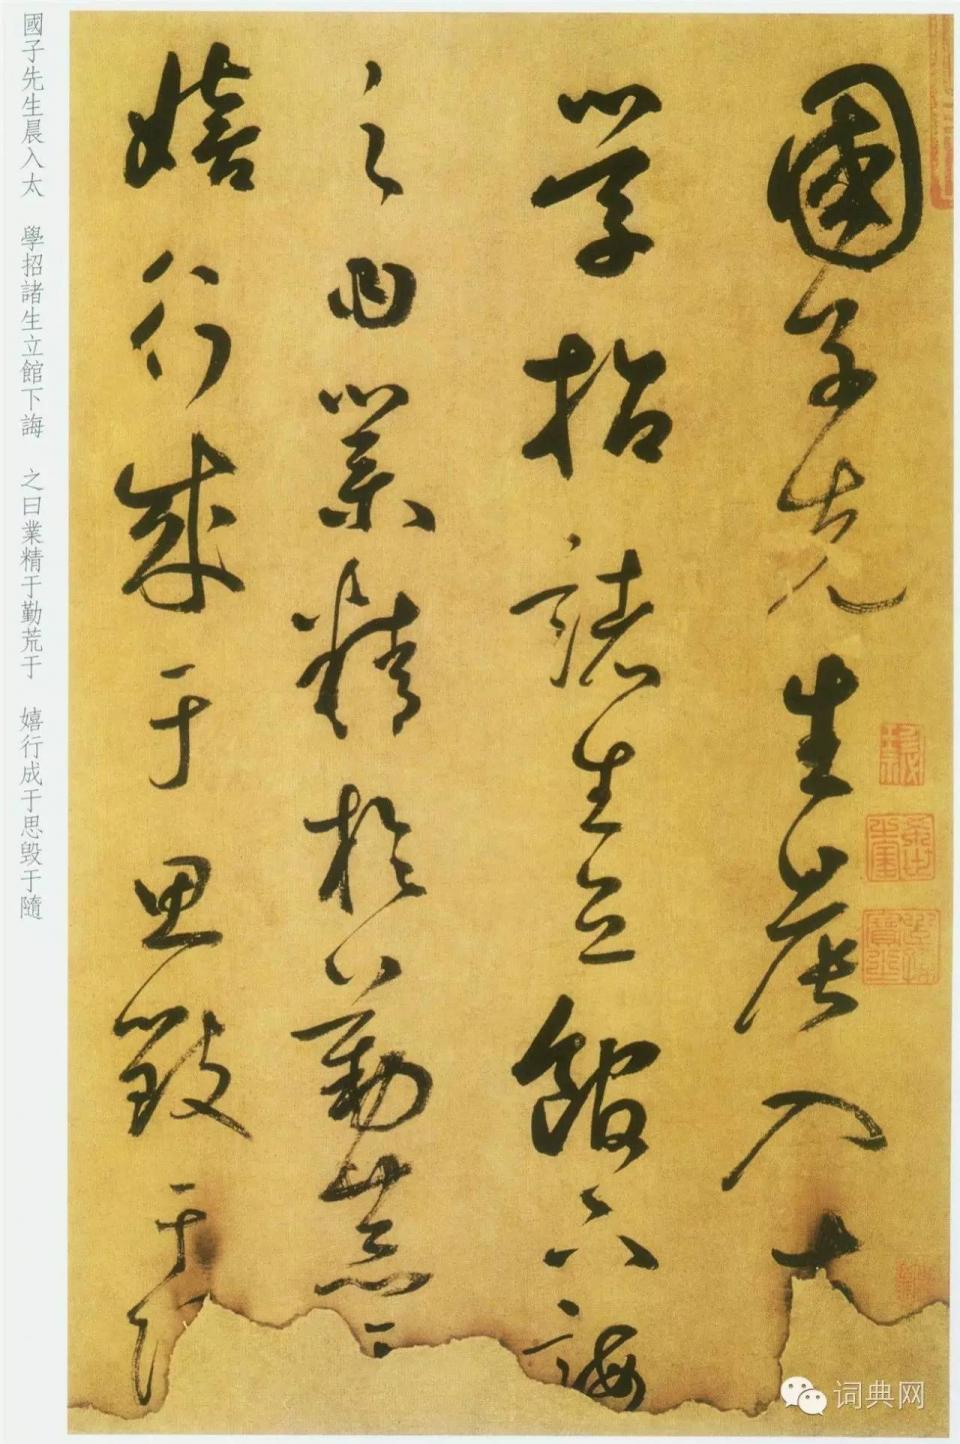 國子先生晨入
學招諸生立館下誨
之曰業精於勤荒
嬉行成于思毀于
國子先生晨入太 學招諸生立館下誨 之曰業精于勤荒于 嬉行成于思毁于隨
词典网